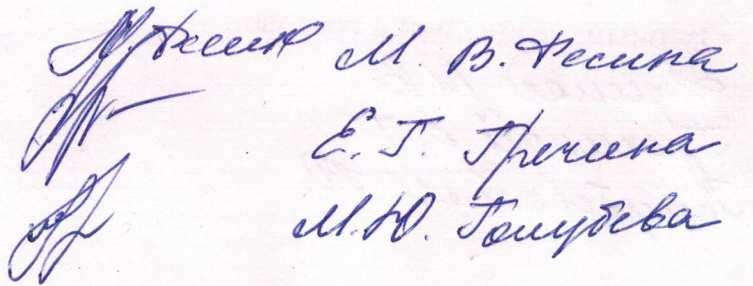 М. В. Фомина
Е. Г. Гречина
М. Ю. Голубева